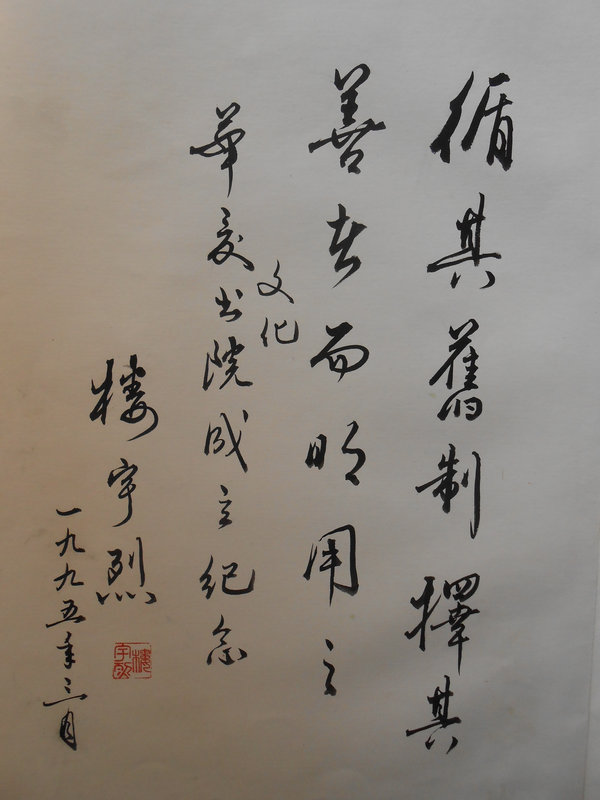 循其舊制擇其
善者而明用之
文化
華夏书院成立紀念
樓宇烈
一九九五年三月
樓宇烈